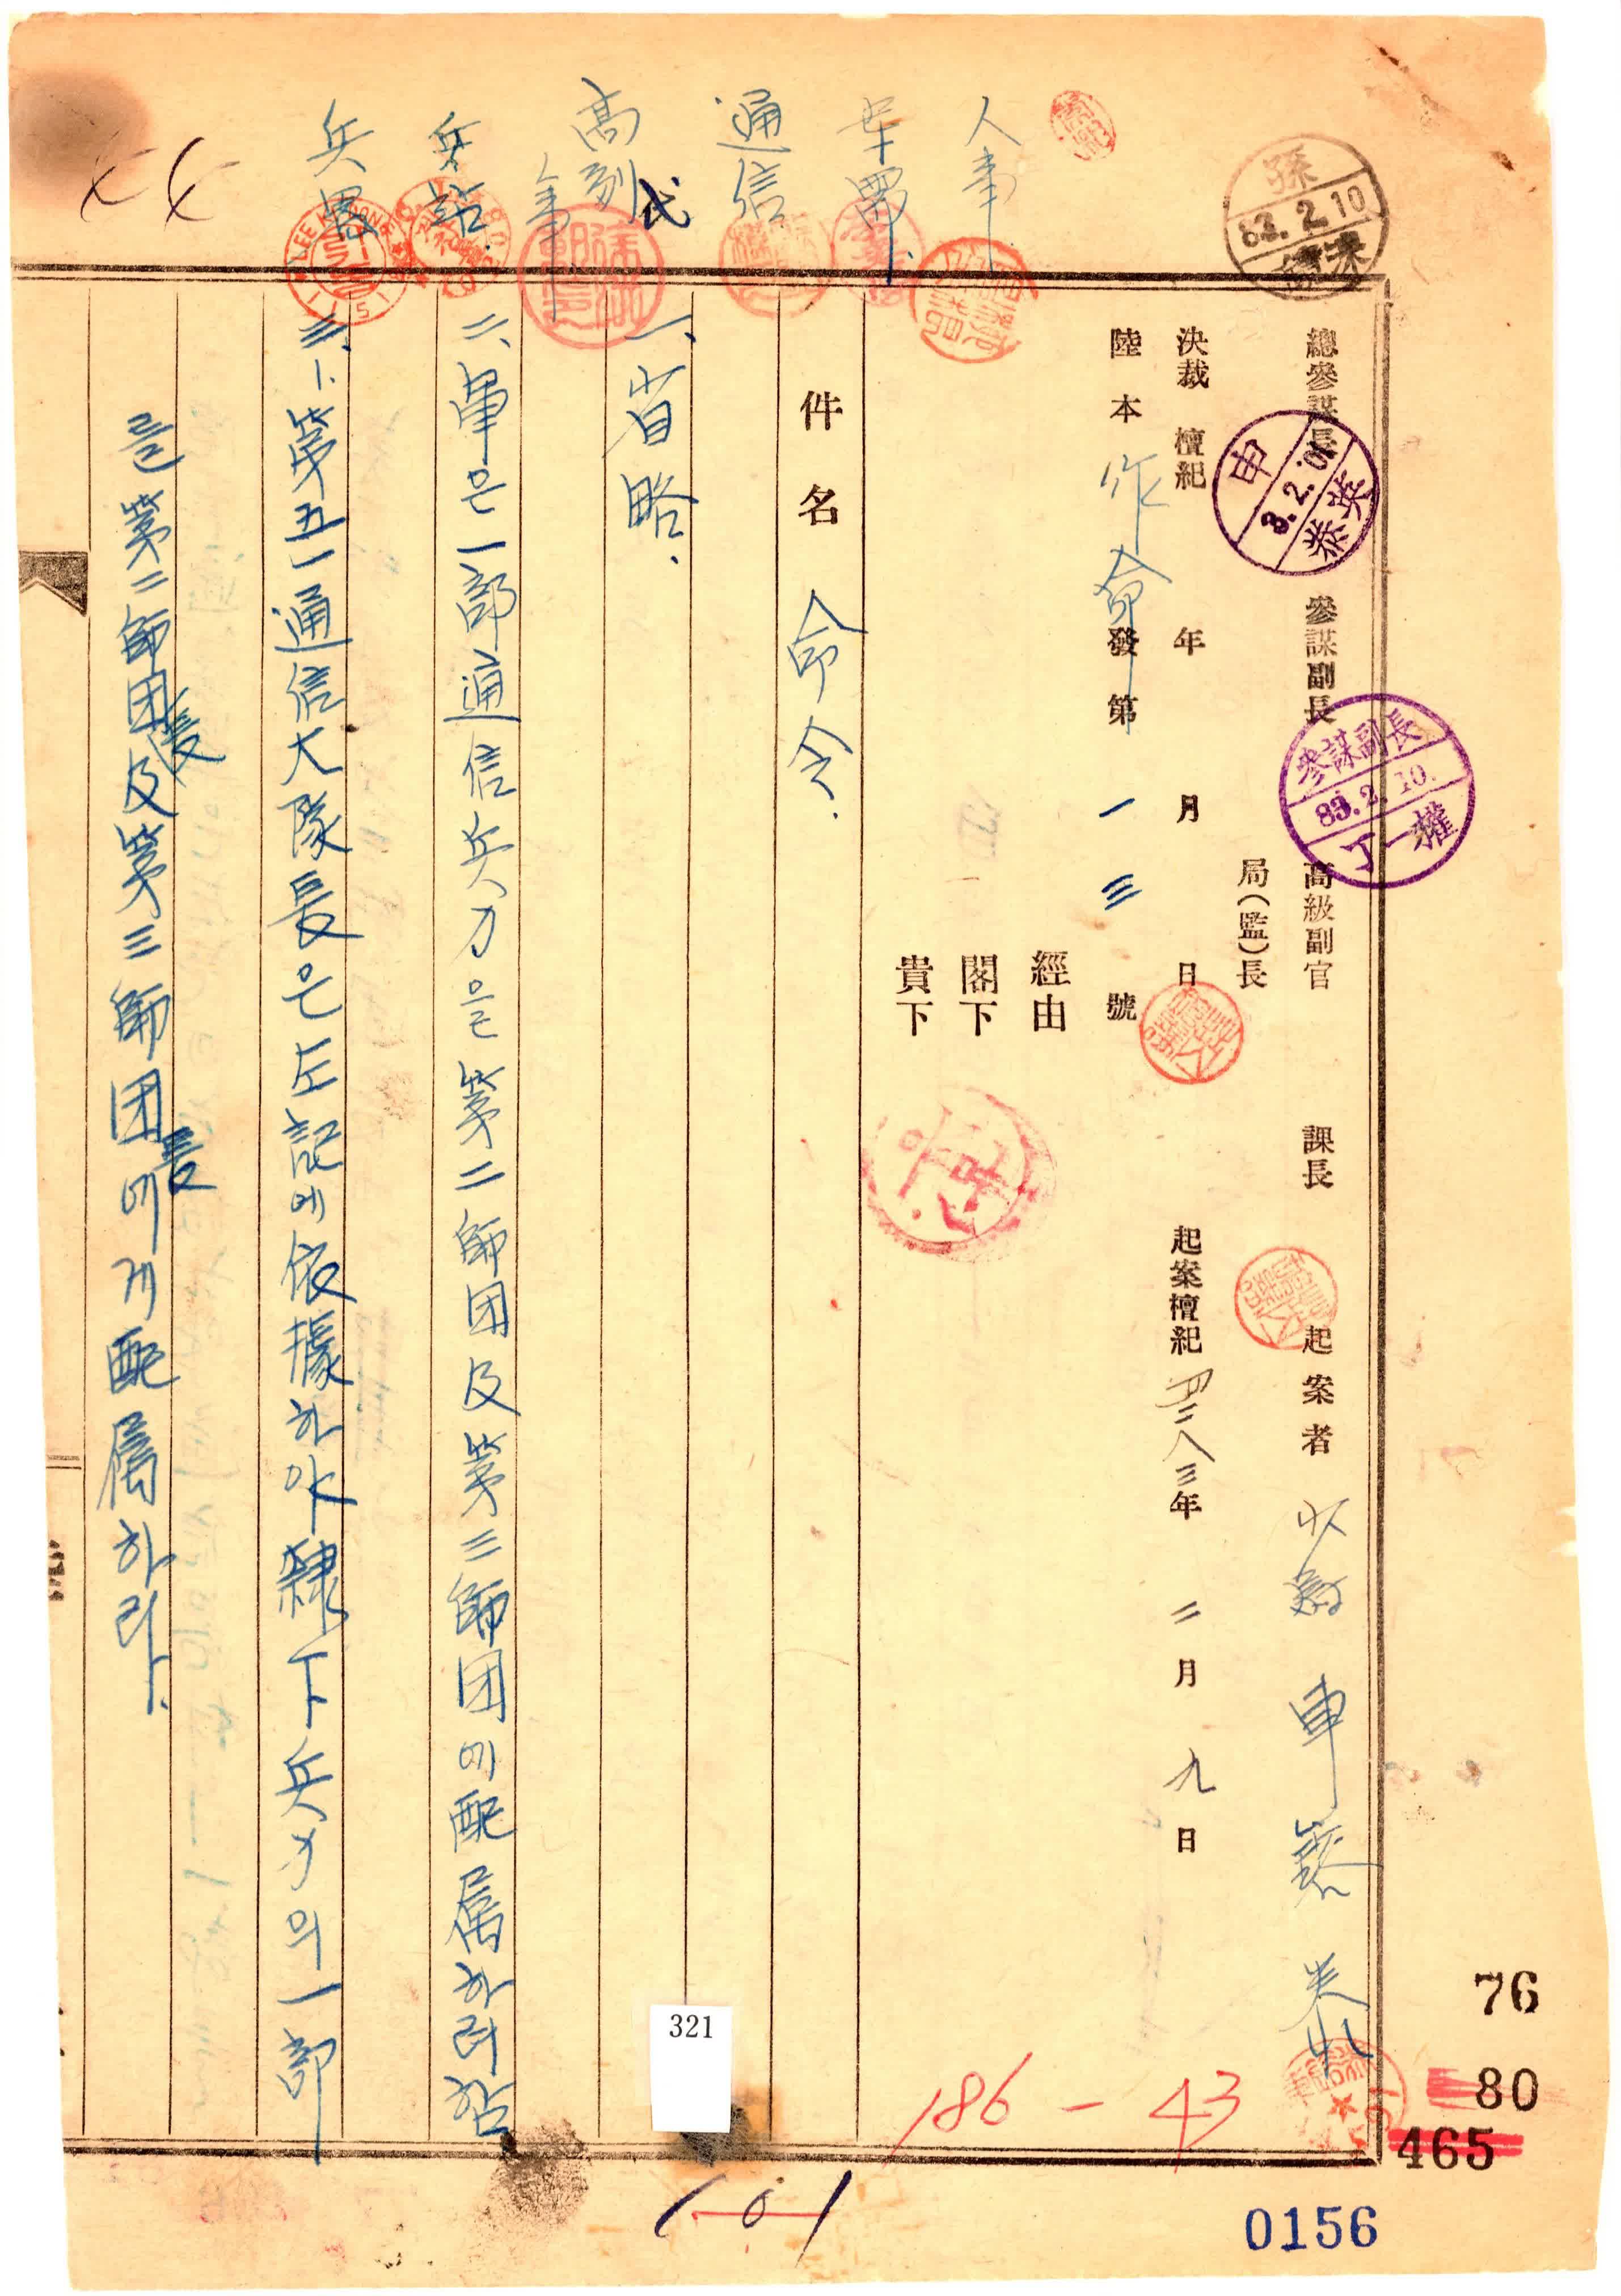 人事
軍需
通信
高副 代
兵站
兵器
孫
83.2.10
總參謀長 參謀副長 高級副官 課長 起案者 少尉 申
局(監)長
申
3.2.
英
參謀副長
83.2.10.
丁一權
決裁 檀紀 年 月 日 起案檀紀 四二八三年 二月 九日
陸本 作命 發第 一三 號
經由
閣下
貴下
件名 命令.
一、省略.
二、軍은一部通信兵力을第二師团及第三師团에配属하려함
三、1.第五一通信大隊長은左記에依據하야隸下兵力의一部
를第二師团長及第三師团長에게配属하라.
76
80
465
0156
186-43
321
101